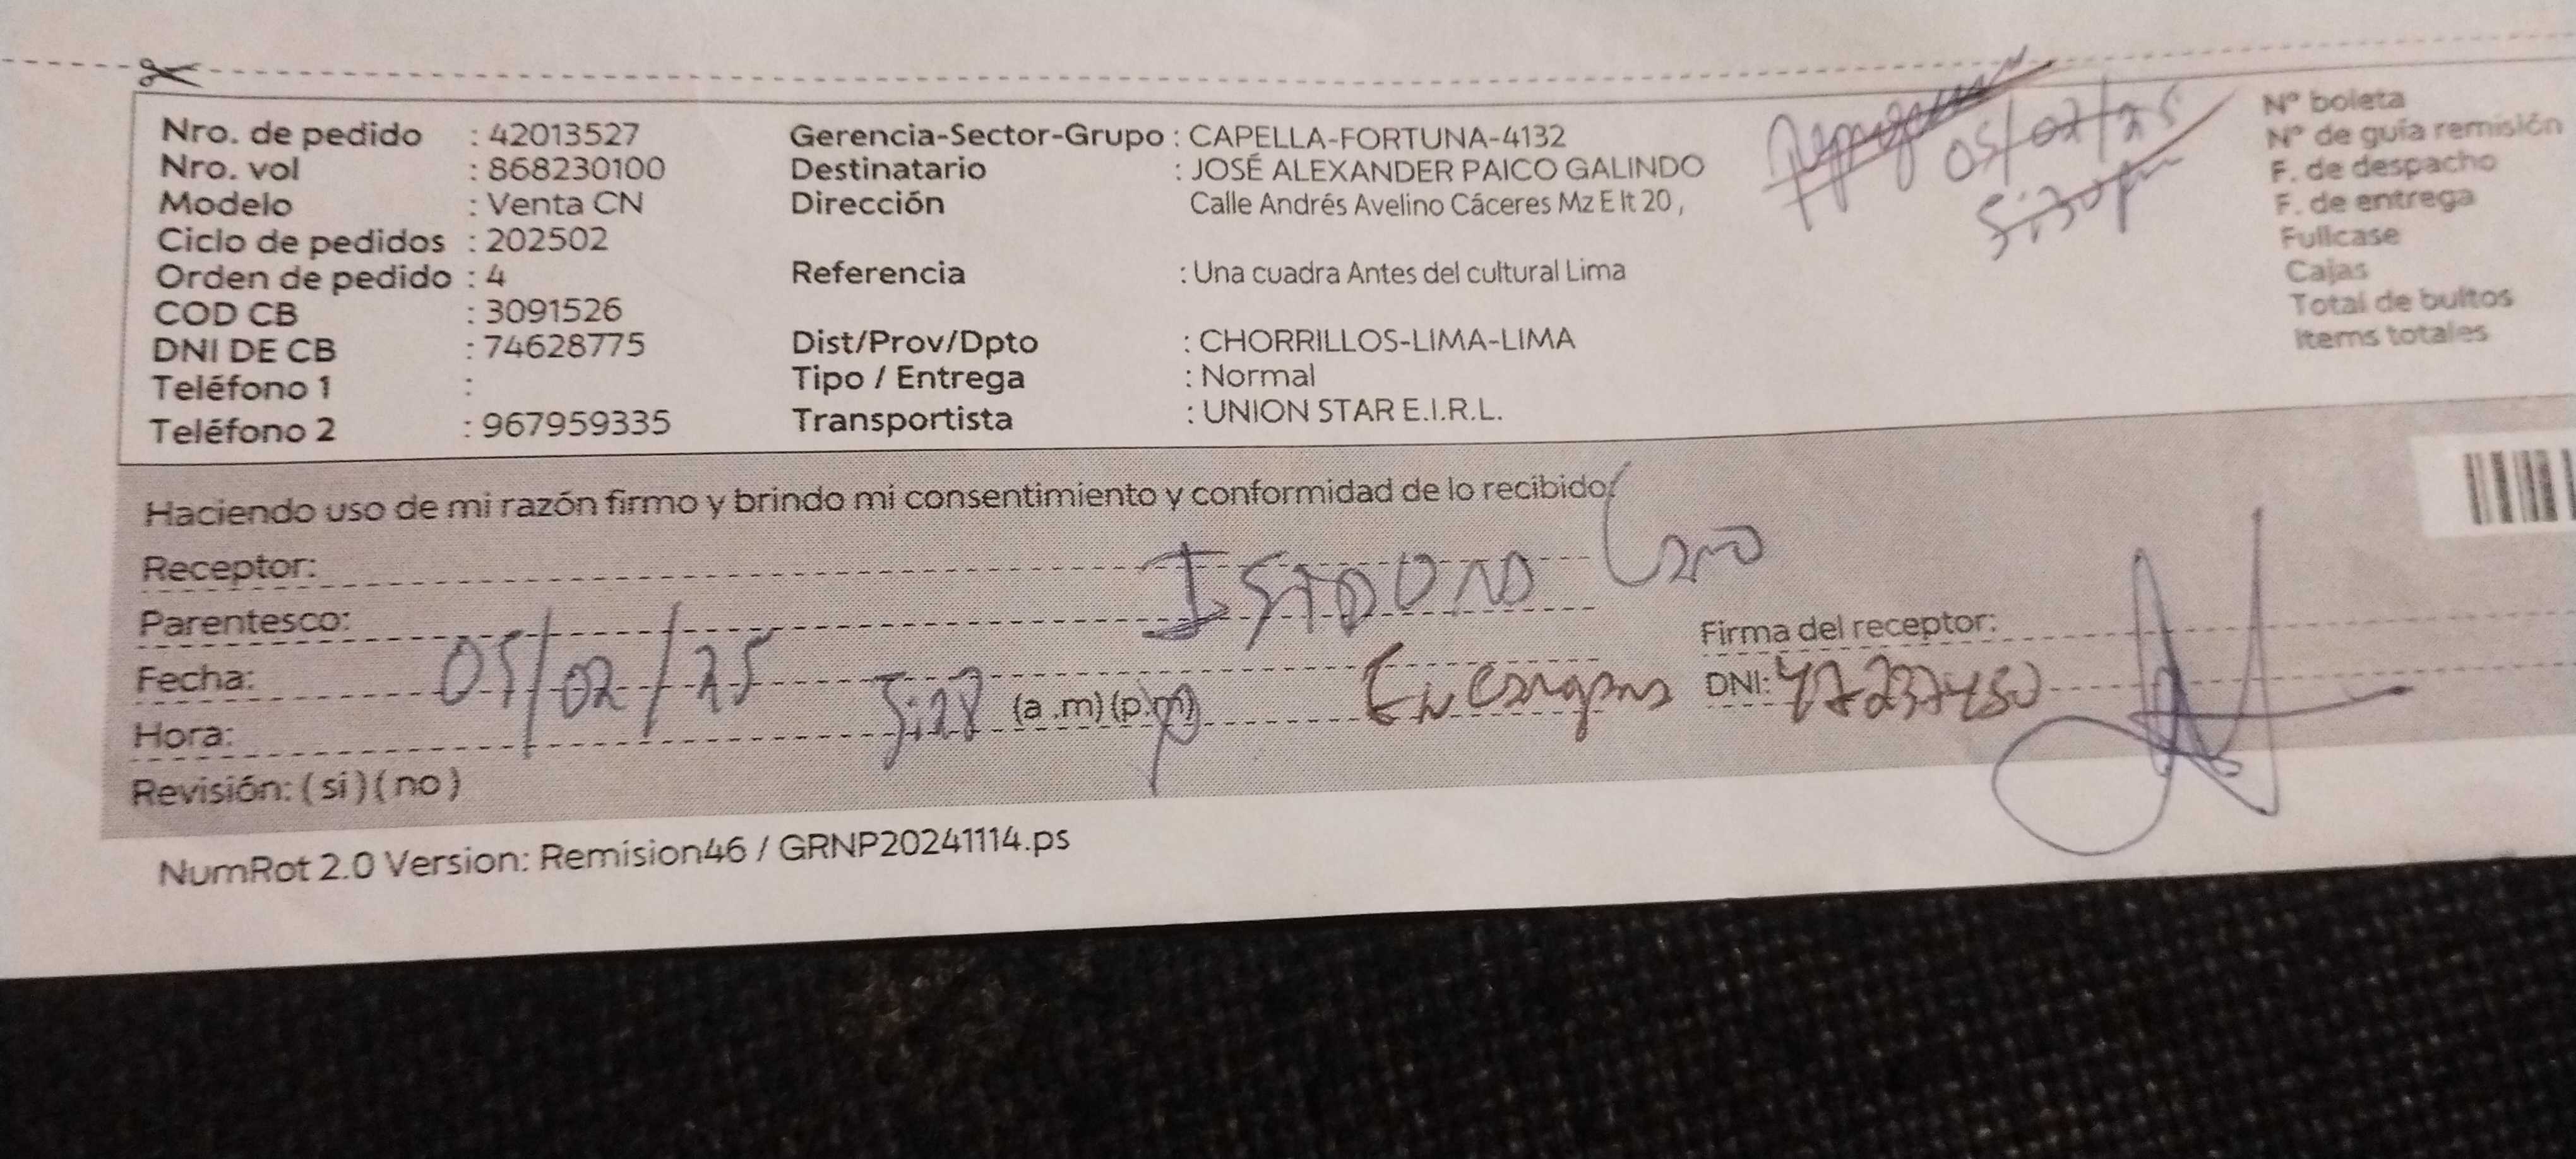 Nro. de pedido : 42013527
Nro. vol : 868230100
Modelo : Venta CN
Ciclo de pedidos : 202502
Orden de pedido : 4
COD CB : 3091526
DNI DE CB : 74628775
Teléfono 1 :
Teléfono 2 : 967959335
Gerencia-Sector-Grupo : CAPELLA-FORTUNA-4132
Destinatario : JOSÉ ALEXANDER PAICO GALINDO
Dirección Calle Andrés Avelino Cáceres Mz E lt 20 ,
Referencia : Una cuadra Antes del cultural Lima
Dist/Prov/Dpto : CHORRILLOS-LIMA-LIMA
Tipo / Entrega : Normal
Transportista : UNION STAR E.I.R.L.
05/02/25
N° boleta
N° de guía remisión
F. de despacho
F. de entrega
Fullcase
Cajas
Total de bultos
Items totales
Haciendo uso de mi razón firmo y brindo mi consentimiento y conformidad de lo recibido
Receptor: Isidoro
Parentesco:
Fecha: 05/02/25
Hora: 5:28 (a .m) (p.m)
Firma del receptor:
DNI: 47237450
Revisión: ( si ) ( no )
NumRot 2.0 Version: Remision46 / GRNP20241114.ps